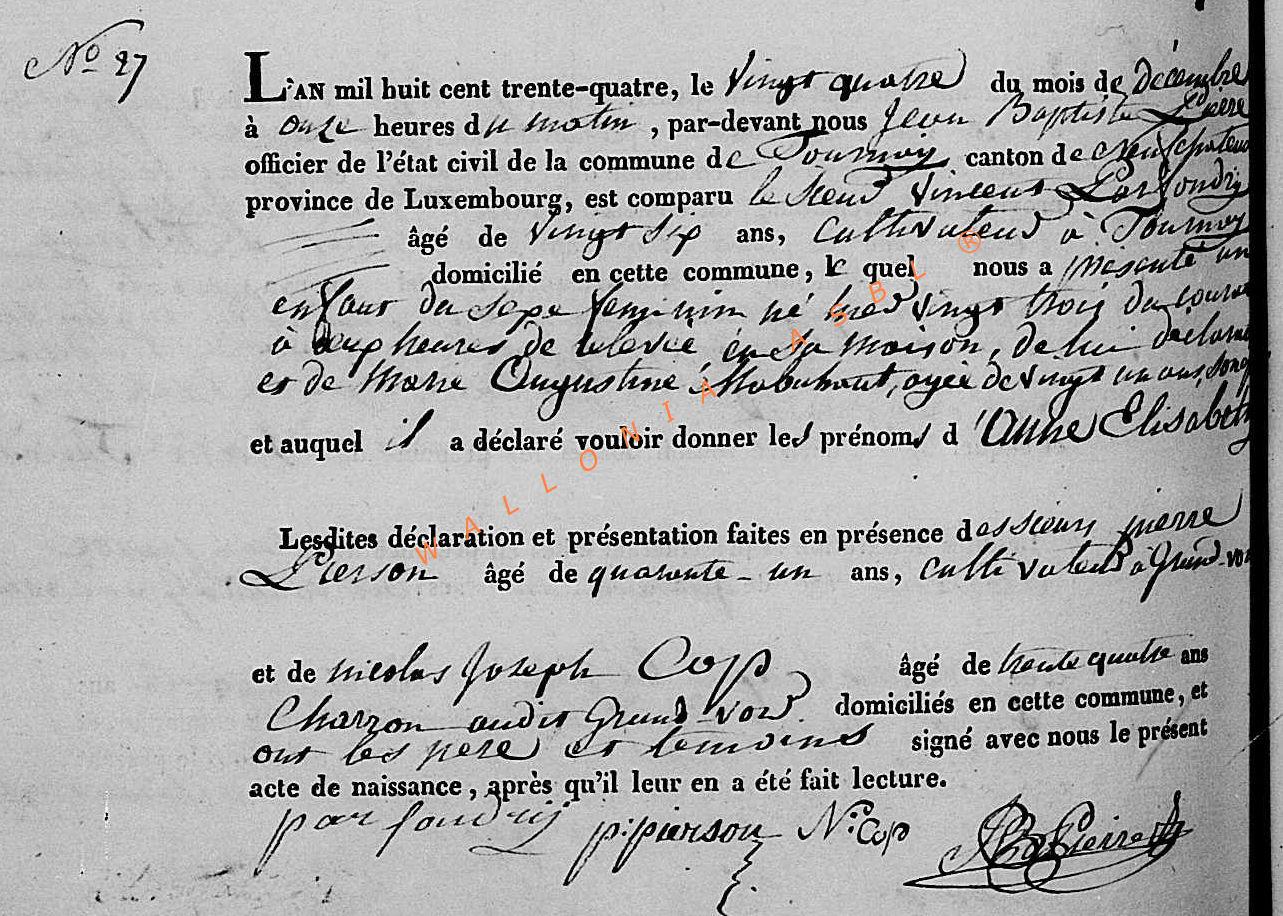 No 27
L'AN mil huit cent trente-quatre, le vingt quatre du mois de décembre
à onze heures du matin, par-devant nous Jean Baptiste Pierre
officier de l'état civil de la commune de Tournay canton de neufchateau
province de Luxembourg, est comparu le sieur Vincent Parfondry
âgé de vingt six ans, cultivateur à Tournay
domicilié en cette commune, le quel nous a présenté un
enfant du sexe feminin né hier vingt trois du courant
à deux heures de relevée en sa maison, de lui déclarant
et de Marie Augustine, agée de vingt un ans,
et auquel il a déclaré vouloir donner les prénoms d'Anne Elisabeth
Lesdites déclaration et présentation faites en présence des sieurs pierre
Pierson âgé de quarante-un ans, cultivateur à Grand-voir
et de nicolas Joseph Cop âgé de trente quatre ans
Charron audit Grand-voir domiciliés en cette commune, et
ont les pere et temoins signé avec nous le présent
acte de naissance, après qu'il leur en a été fait lecture.
parfondry p: pierson N: Cop
WALLONIA ASBL ®